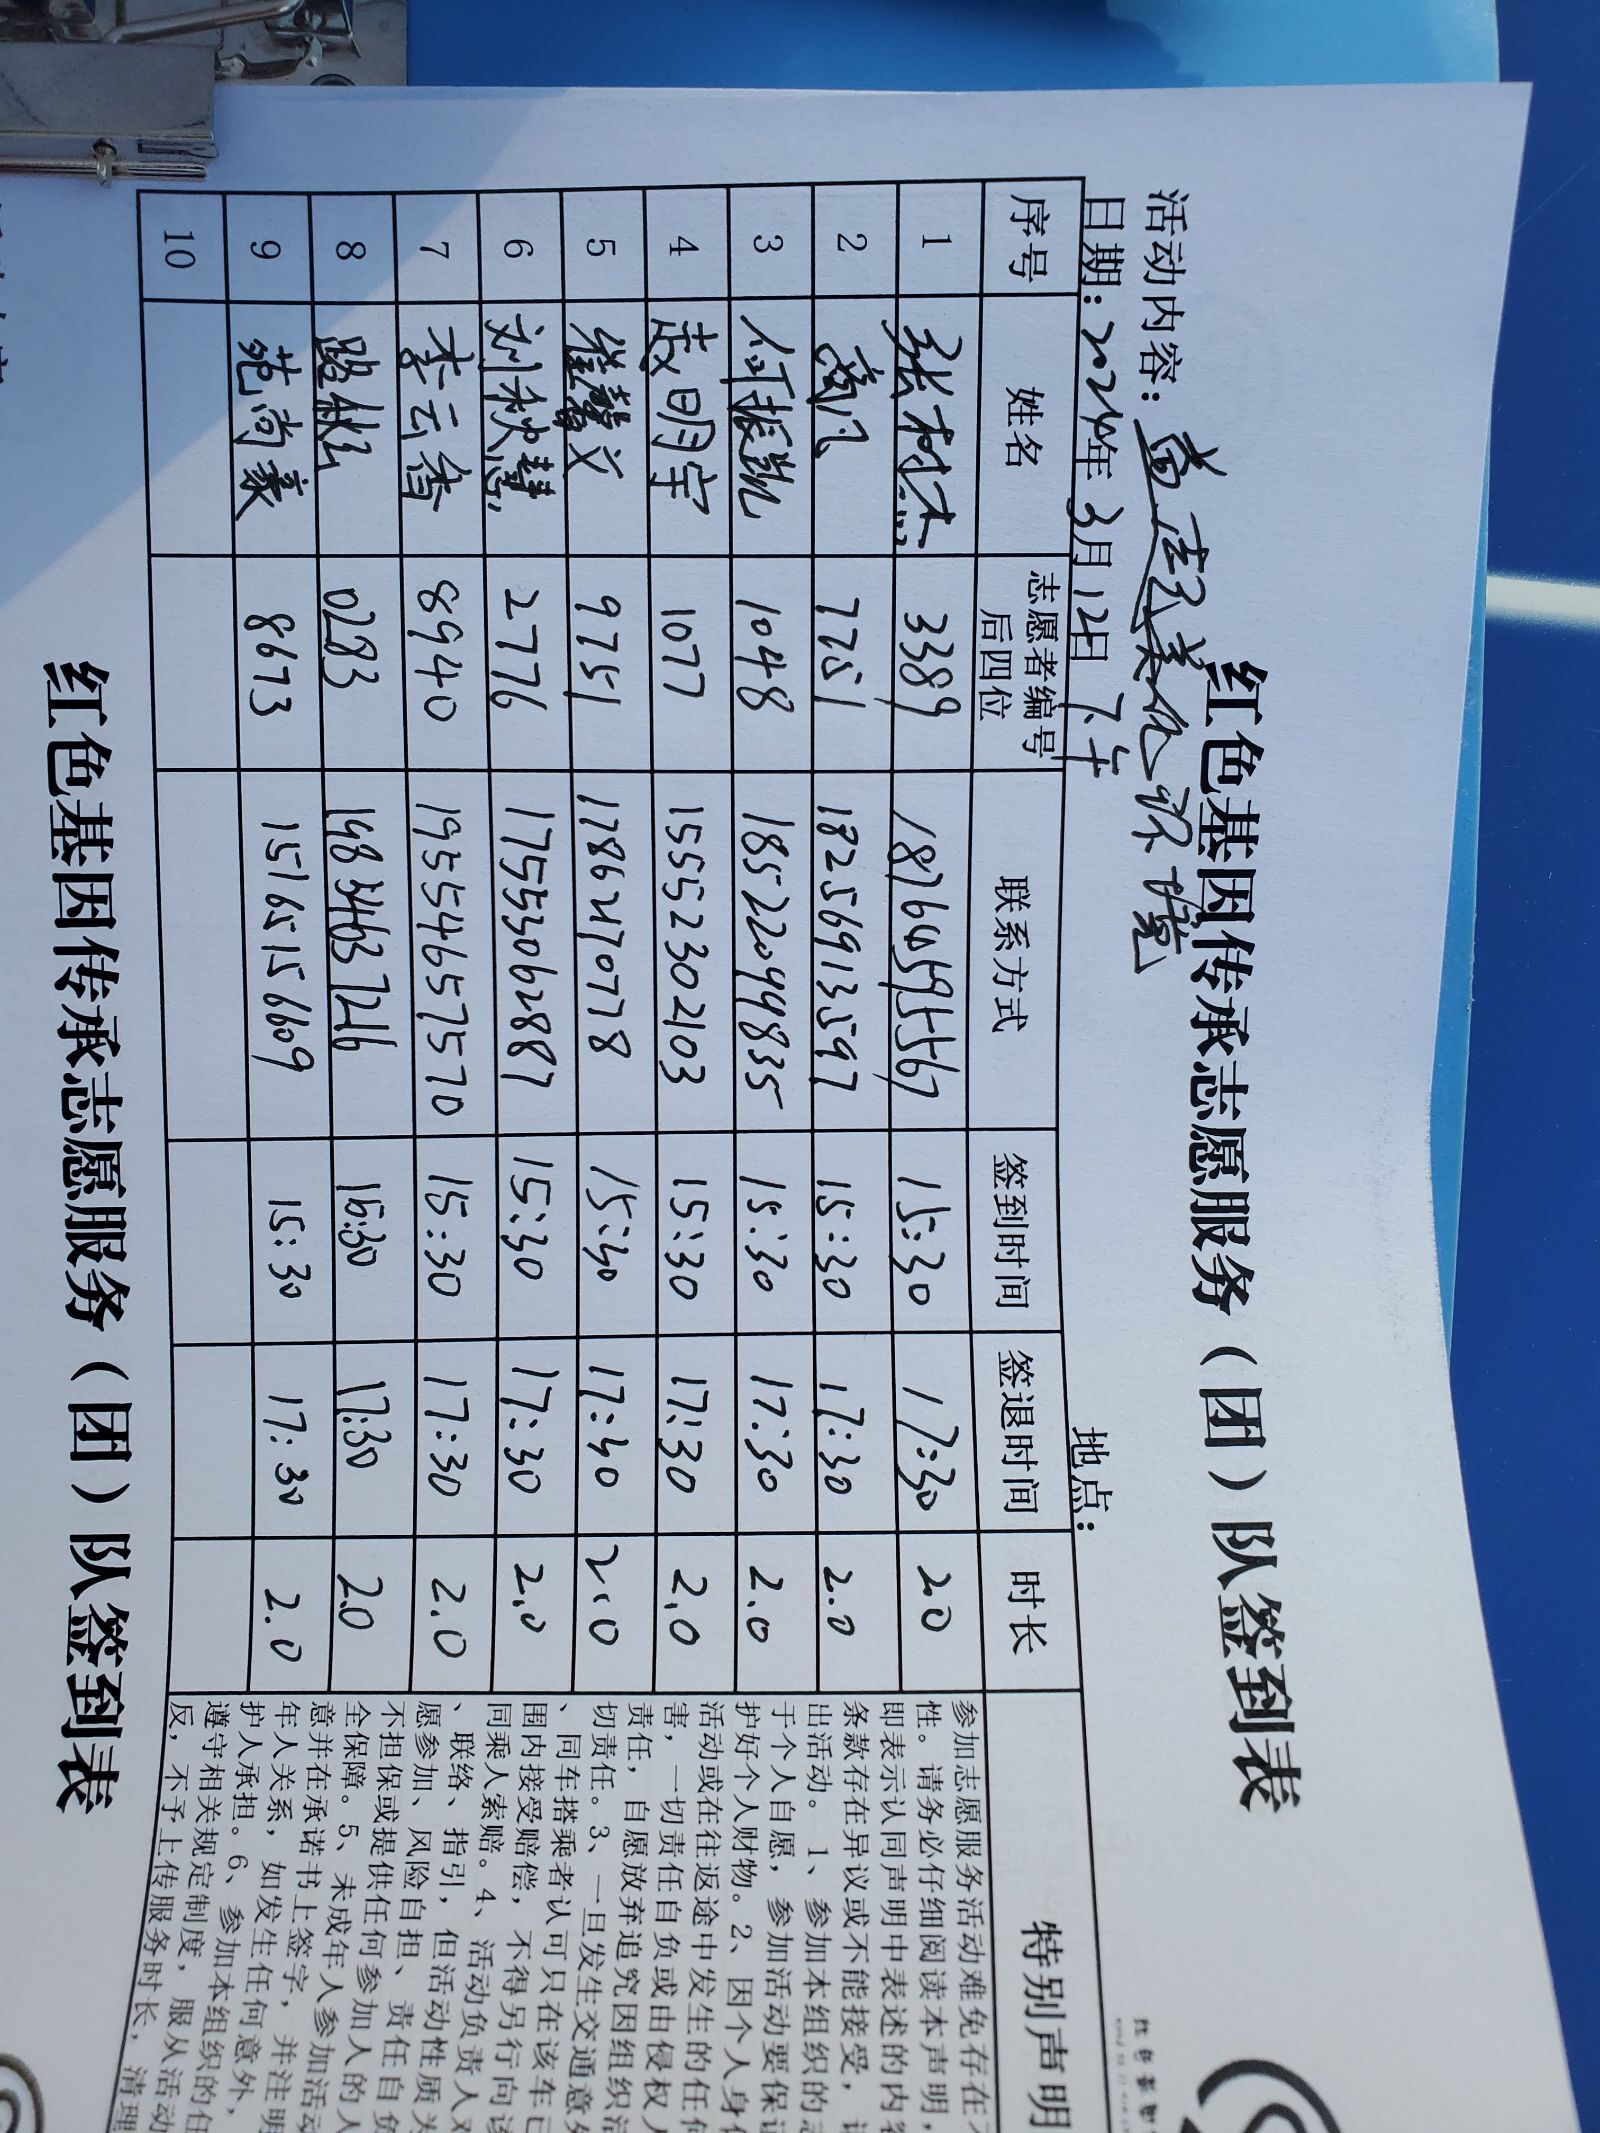 红色基因传承志愿服务（团）队签到表
活动内容：
日期：2024年3月12日下午 地点：
序号 姓名 志愿者编号后四位 联系方式 签到时间 签退时间 时长 特别声明
1 张树杰 3389 18764595567 15:30 17:30 2.0
2 7751 18256913597 15:30 17:30 2.0
3 何振凯 1048 18522099835 15:30 17:30 2.0
4 明宇 1077 15552302103 15:30 17:30 2.0
5 崔馨文 9751 17862170778 15:30 17:40 2.0
6 刘秋慧 2776 17553062887 15:30 17:30 2.0
7 李云香 8940 19554657570 15:30 17:30 2.0
8 0283 19834637216 15:30 17:30 2.0
9 苑尚豪 8673 15165156609 15:30 17:30 2.0
10
参加志愿服务活动难免存在
性。请务必仔细阅读本声明，
即表示认同声明中表述的内容
条款存在异议或不能接受，
出活动。1、参加本组织的志
于个人自愿，参加活动要保证
护好个人财物。2、因个人身
活动或在往返途中发生的任何
害，一切责任自负或由侵权人
责任，自愿放弃追究因组织活
切责任。3、一旦发生交通意外
、同车搭乘者认可只在该车已
围内接受赔偿，不得另行向该
同乘人索赔。4、活动负责人对
、联络、指引，但活动性质为
愿参加、风险自担、责任自负
不担保或提供任何参加人的人
全保障。5、未成年人参加活动
意并在承诺书上签字，并注明
年人关系，如发生任何意外，
护人承担。6、参加本组织的任
遵守相关规定制度，服从活动
反，不予上传服务时长，清理
红色基因传承志愿服务（团）队签到表